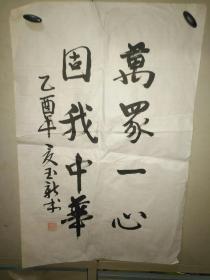 萬眾一心
固我中華
乙酉年